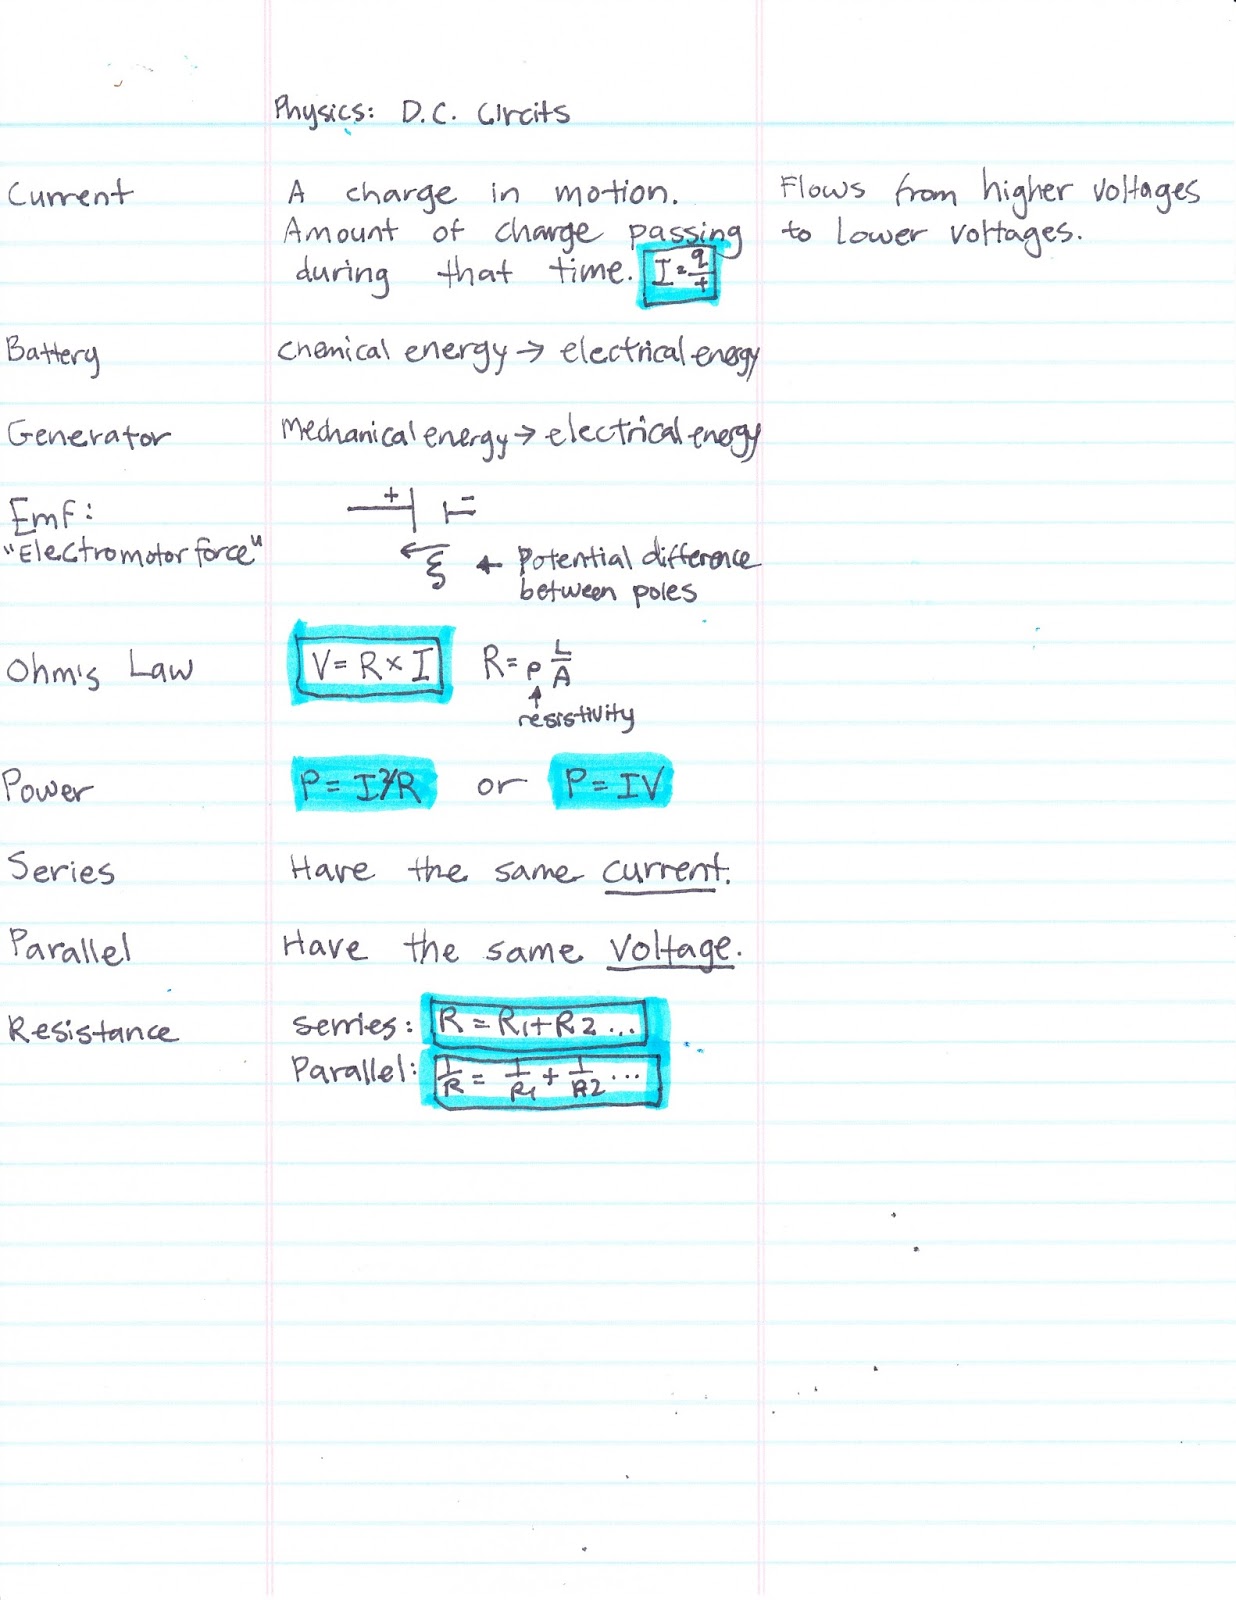 Physics: D.C. Circits
Current
A charge in motion.
Amount of charge passing
during that time. I = q/t
Flows from higher voltages
to lower voltages.
Battery
chemical energy → electrical energy
Generator
Mechanical energy → electrical energy
Emf:
"Electromotor force"
+ -
ξ ← Potential difference
between poles
Ohm's Law
V = R × I R = ρ L/A
↑
resistivity
Power
P = I²R or P = IV
Series
Have the same current.
Parallel
Have the same voltage.
Resistance
serries: R = R1 + R2 ...
Parallel: 1/R = 1/R1 + 1/R2 ...